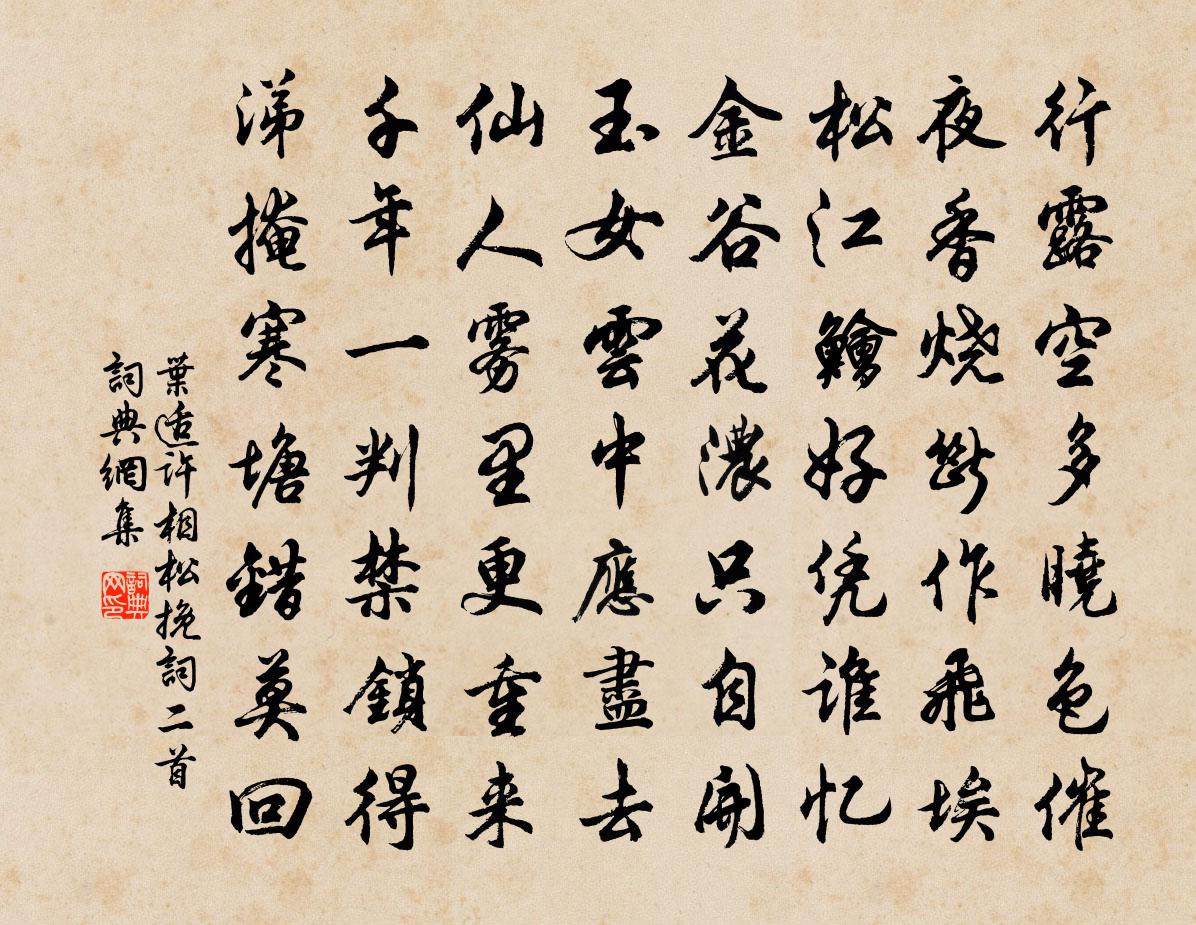 行露空多曉色催
夜香烧斷作飛埃
松江鱠好凭誰忆
金谷花濃只自開
玉女雲中應盡去
仙人雾里更重来
千年一判禁鎖得
涕掩寒塘錯莫回
葉适許相松挽詞二首
詞典網集
詞典网印